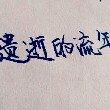 遗逝的流年